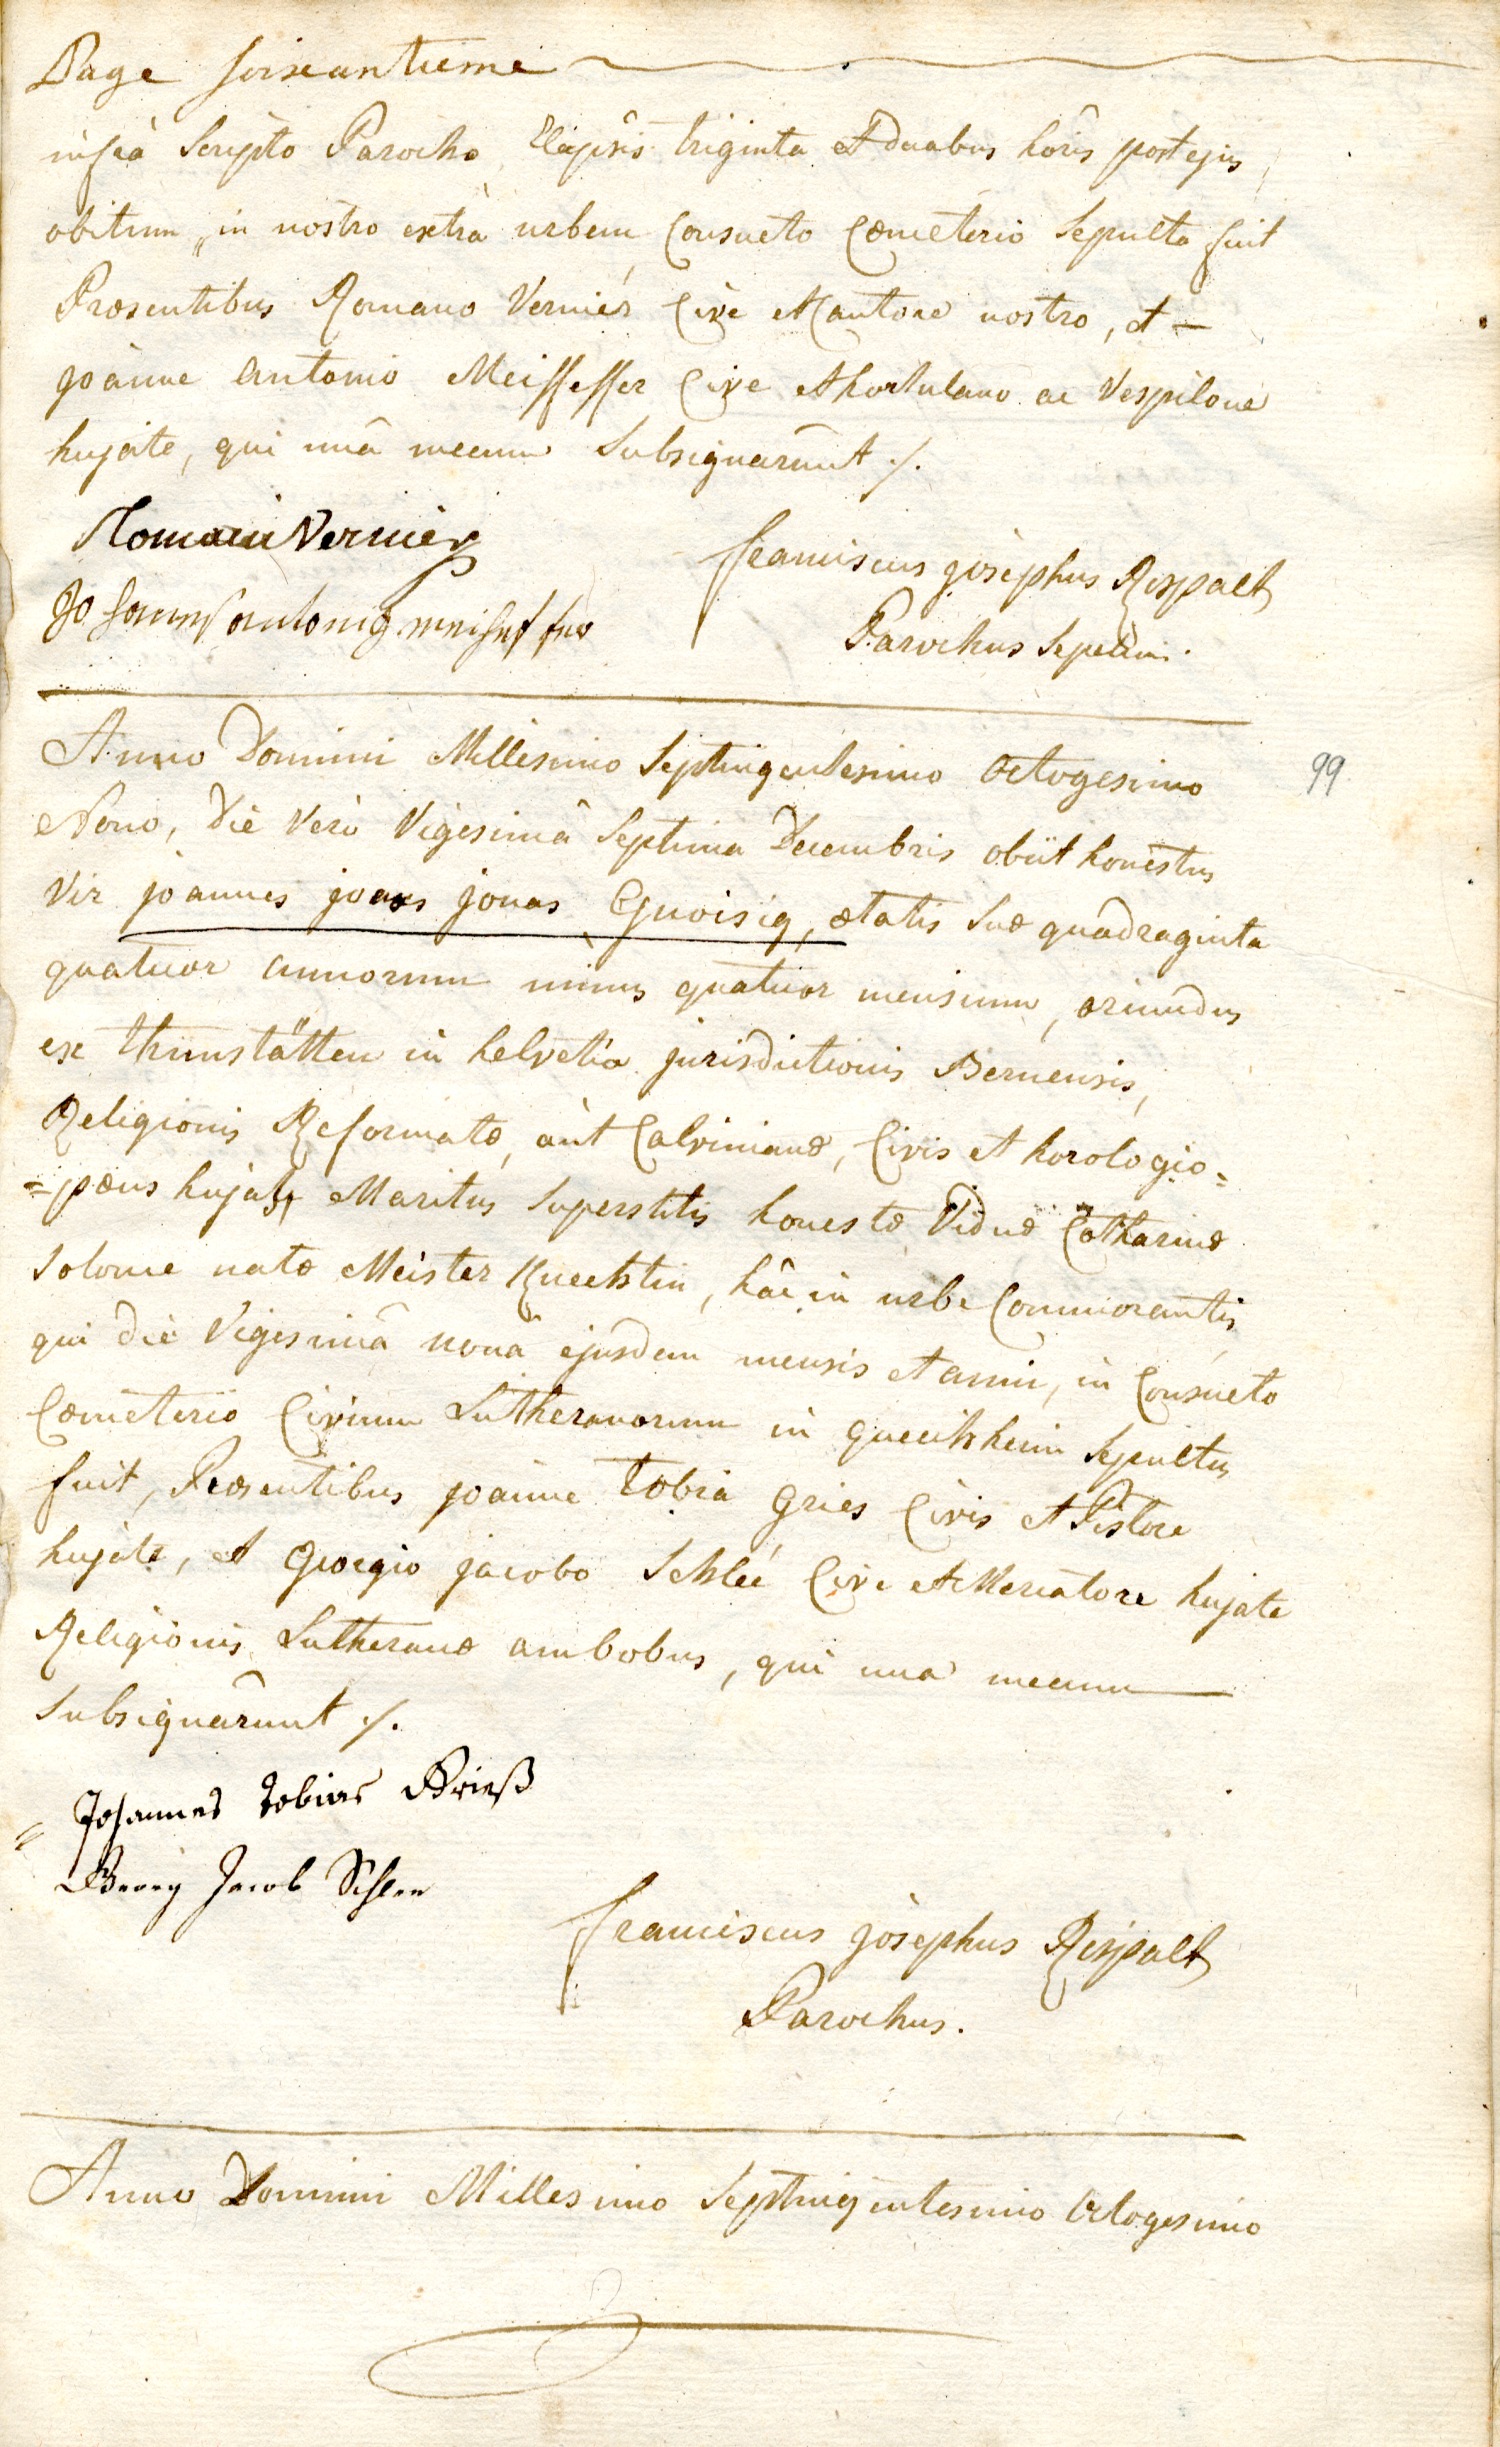 Page soixantieme
infrà Scripto Parocho Elapsis triginta et duabus horis post ejus
obitum, in nostro extrà urbem Consueto Cœmeterio Sepulta fuit
Præsentibus Romano Vernier Cive et Cantore nostro, et —
joanne Antonio Meisseffer Cive et hortulano ac Vespilone
hujate, qui unà mecum Subsignârunt ./.
Romain Vernier
Johannes antonig meiseffer
franciscus josephus Rispalt
Parochus Sepelivi.
Anno Domini Millesimo Septingentesimo Octogesimo
99
Nono, Die Verò Vigesimâ Septima Decembris obiit honestus
Vir joannes jonas Gnoisig, ætatis Suæ quadraginta
quatuor annorum minus quatuor mensium, oriundus
ex thunstätten in helvetia jurisdictionis Bernensis,
Religionis Reformatæ, aut Calvinianæ, Civis et horologio=
=pœus hujas, Maritus Superstitis honestæ Viduæ Catharinæ
Solome natæ Meister Knechtin, hâc in urbe Commorantis,
qui die Vigesimâ nona ejusdem mensis et anni, in Consueto
Cœmeterio Civium Lutheranorum in queichheim Sepultus
fuit, Præsentibus joanne tobia Gries Civis et Pistore
hujate, et Georgio jacobo Schleé Cive et Mercatore hujate
Religionis Lutheranæ ambobus, qui una mecum —
Subsignârunt ./.
Johannes Tobias Grieß
Georg Jacob Schlee
franciscus josephus Rispalt
Parochus.
Anno Domini Millesimo Septingentesimo Octogesimo